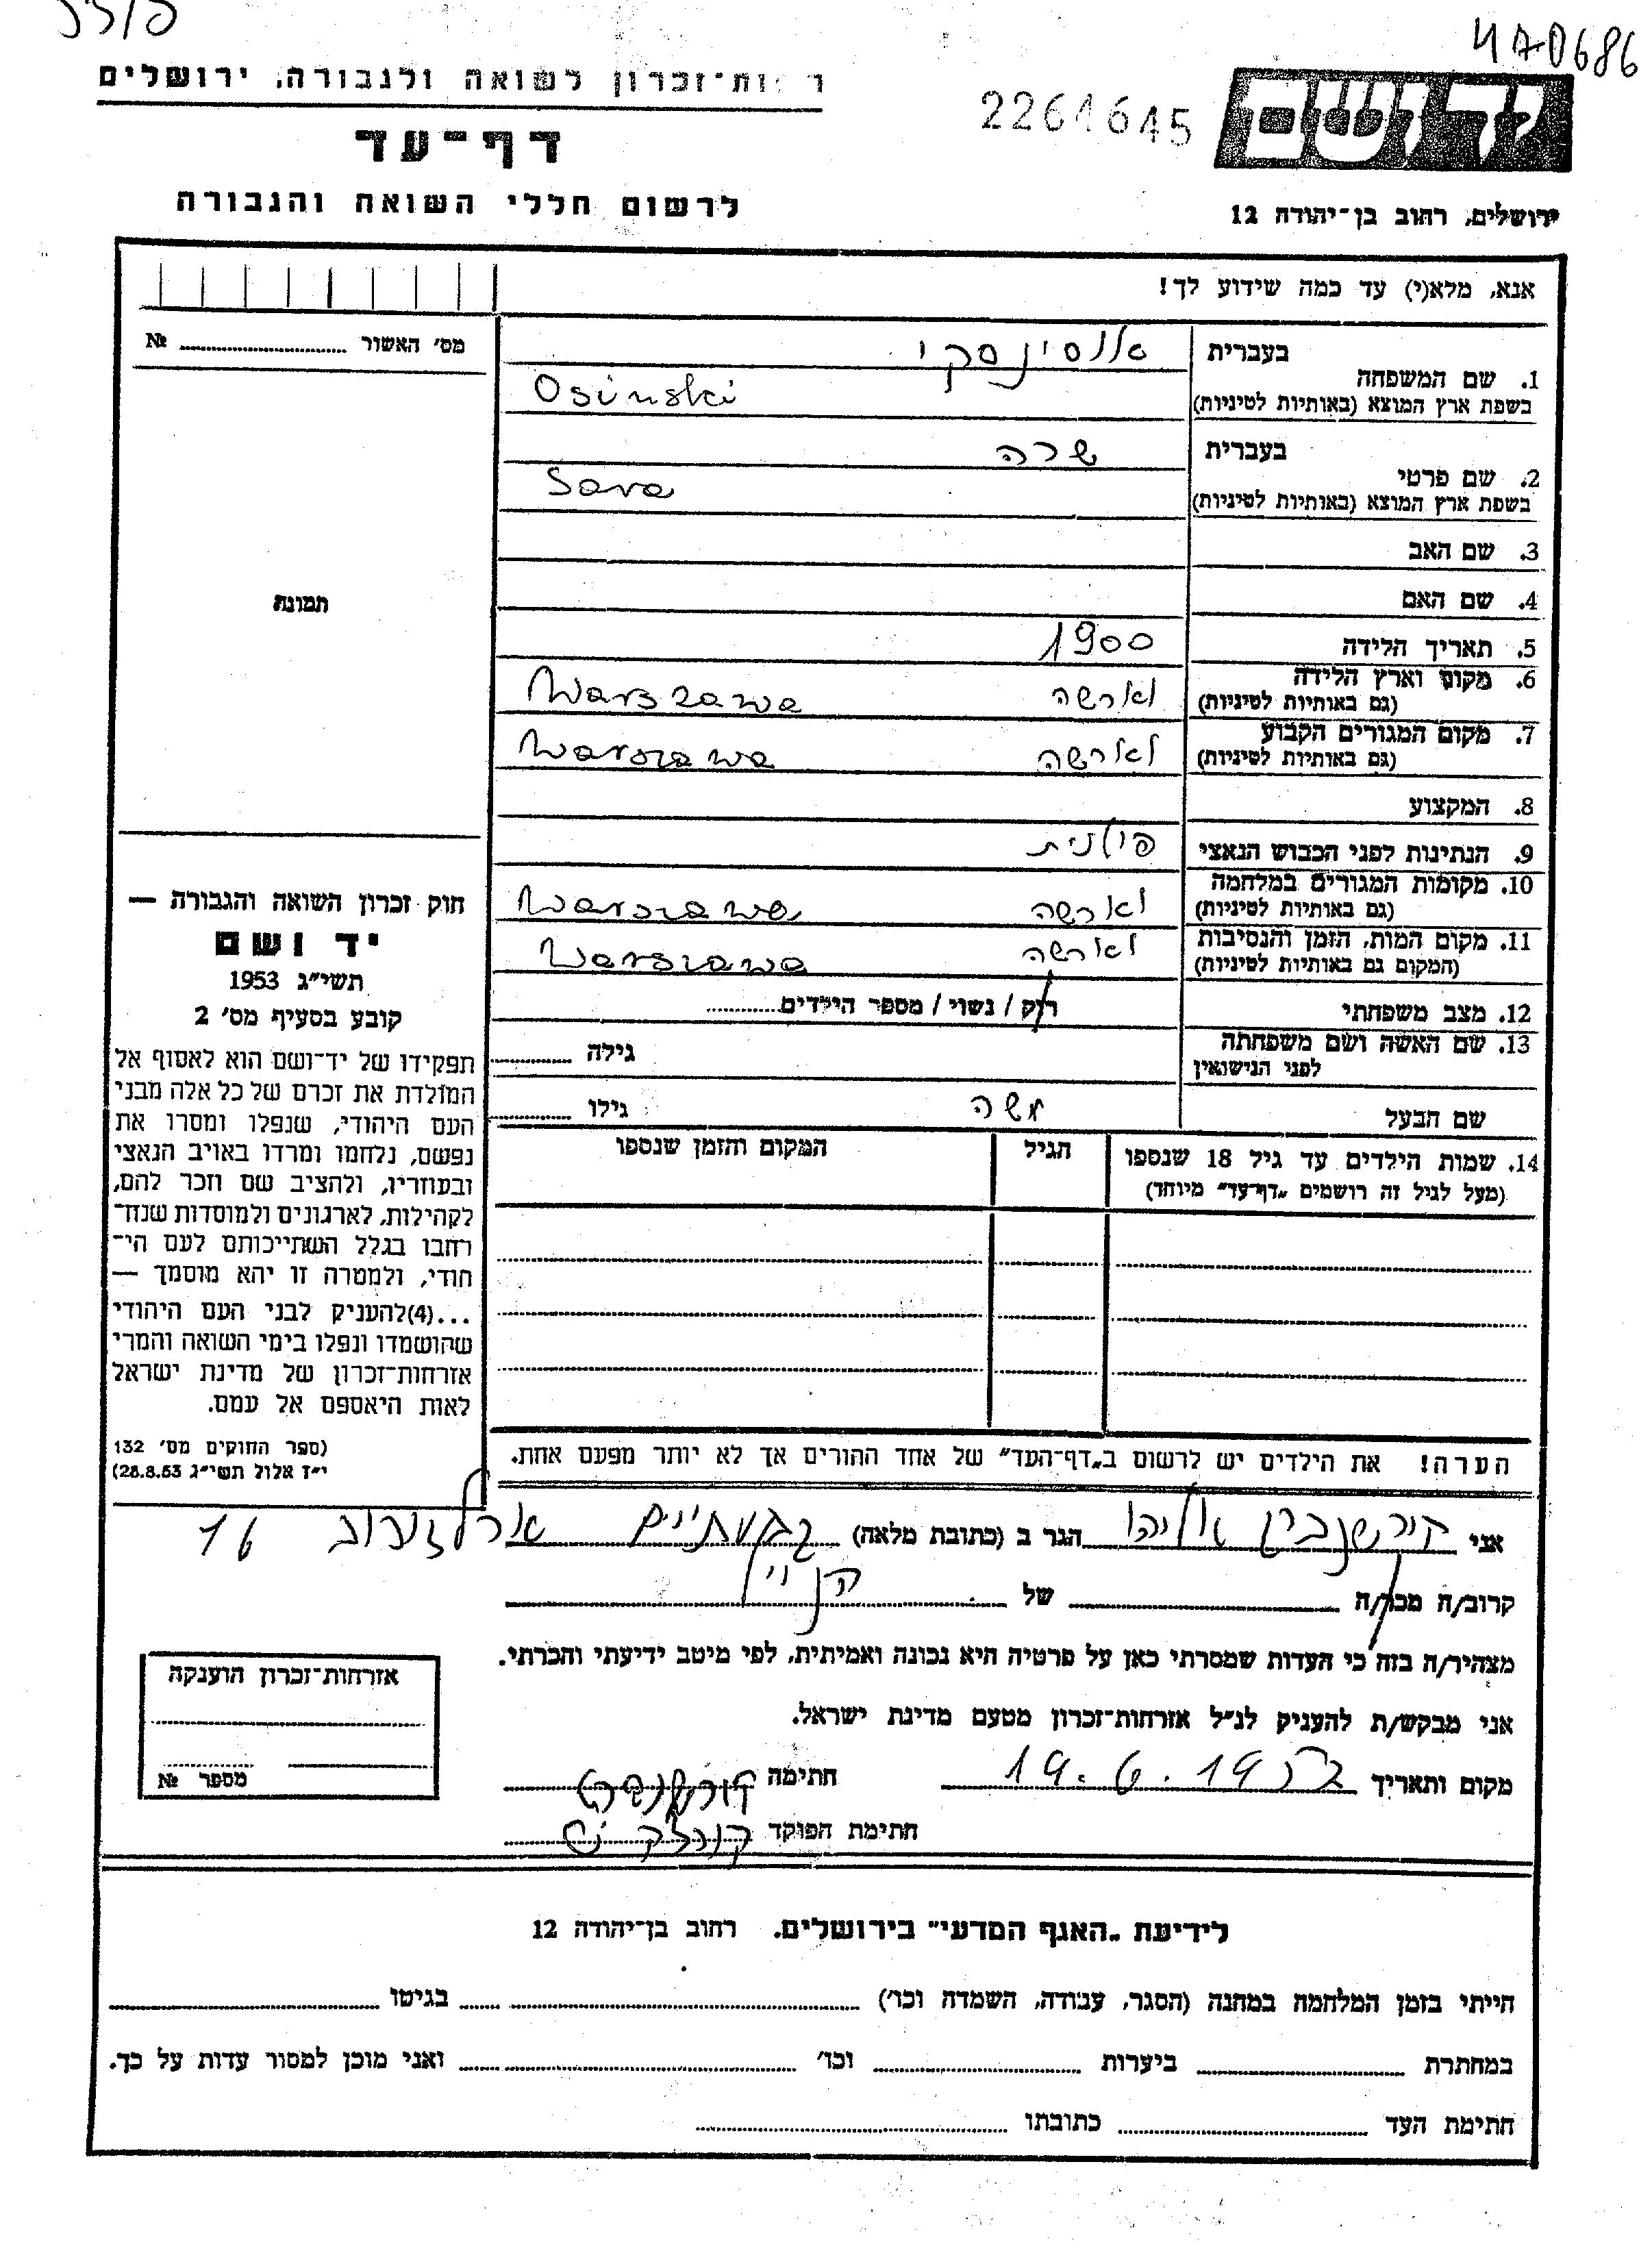 470686
רשות־זכרון לשואה ולגבורה, ירושלים
2261645
יד ושם
דף־עד
לרשום חללי השואה והגבורה
ירושלים, רחוב בן־יהודה 12
אנא, מלא(י) עד כמה שידוע לך!
מס' האשור № 
1. שם המשפחה
בעברית אוסינסקי
בשפת ארץ המוצא (באותיות לטיניות) Osinski
2. שם פרטי
בעברית שרה
בשפת ארץ המוצא (באותיות לטיניות) Sara
3. שם האב
4. שם האם
תמונה
5. תאריך הלידה 1900
6. מקום וארץ הלידה (גם באותיות לטיניות) וארשה Warszawa
7. מקום המגורים הקבוע (גם באותיות לטיניות) וארשה Warszawa
8. המקצוע
9. הנתינות לפני הכבוש הנאצי פולנית
10. מקומות המגורים במלחמה (גם באותיות לטיניות) וארשה Warszawa
11. מקום המות, הזמן והנסיבות (המקום גם באותיות לטיניות) וארשה Warszawa
12. מצב משפחתי רוק / נשוי / מספר הילדים
13. שם האשה ושם משפחתה לפני הנישואין גילה
שם הבעל משה גילו
14. שמות הילדים עד גיל 18 שנספו (מעל לגיל זה רושמים „דף־עד" מיוחד) הגיל המקום והזמן שנספו
חוק זכרון השואה והגבורה —
יד ושם
תשי"ג 1953
קובע בסעיף מס' 2
תפקידו של יד־ושם הוא לאסוף אל
המולדת את זכרם של כל אלה מבני
העם היהודי, שנפלו ומסרו את
נפשם, נלחמו ומרדו באויב הנאצי
ובעוזריו, ולהציב שם וזכר להם,
לקהילות, לארגונים ולמוסדות שנח־
רבו בגלל השתייכותם לעם הי־
הודי, ולמטרה זו יהא מוסמך —
...(4)להעניק לבני העם היהודי
שהושמדו ונפלו בימי השואה והמרי
אזרחות־זכרון של מדינת ישראל
לאות היאספם אל עמם.
(ספר החוקים מס' 132
י"ז אלול תשי"ג 28.8.53)
הערה! את הילדים יש לרשום ב„דף־העד" של אחד ההורים אך לא יותר מפעם אחת.
אני קירשנברג אליהו הגר ב (כתובת מלאה) גבעתיים ארלוזורוב 16
קרוב/ה מכר/ה של הנ"ל
מצהיר/ה בזה כי העדות שמסרתי כאן על פרטיה היא נכונה ואמיתית, לפי מיטב ידיעתי והכרתי.
אני מבקש/ת להעניק לנ"ל אזרחות־זכרון מטעם מדינת ישראל.
מקום ותאריך 19.6.19 חתימה
חתימת הפוקד
אזרחות־זכרון הוענקה
מספר №
לידיעת „האגף המדעי" בירושלים. רחוב בן־יהודה 12
הייתי בזמן המלחמה במחנה (הסגר, עבודה, השמדה וכו') בגיטו
במחתרת ביערות וכו' ואני מוכן למסור עדות על כך.
חתימת העד כתובתו